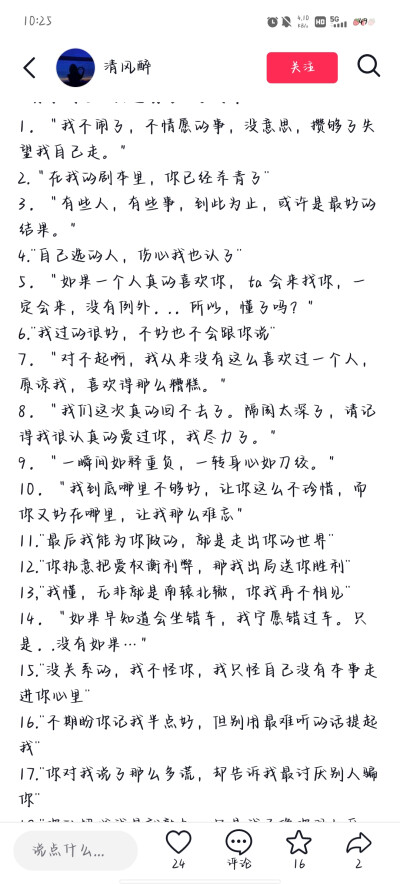 10:25
4.10
KB/s
HD
5G
49
清风醉
关注
1. "我不闹了，不情愿的事，没意思，攒够了失
望我自己走。"
2. "在我的剧本里，你已经杀青了"
3. "有些人，有些事，到此为止，或许是最好的
结果。"
4."自己选的人，伤心我也认了"
5. "如果一个人真的喜欢你，ta会来找你，一
定会来，没有例外...所以，懂了吗？"
6."我过的很好，不好也不会跟你说"
7. "对不起啊，我从来没有这么喜欢过一个人，
原谅我，喜欢得那么糟糕。"
8. "我们这次真的回不去了。隔阂太深了，请记
得我很认真的爱过你，我尽力了。"
9. "一瞬间如释重负，一转身心如刀绞。"
10. "我到底哪里不够好，让你这么不珍惜，而
你又好在哪里，让我那么难忘"
11."最后我能为你做的，就是走出你的世界"
12."你执意把爱权衡利弊，那我出局送你胜利"
13,"我懂，无非都是南辕北辙，你我再不相见"
14. "如果早知道会坐错车，我宁愿错过车。只
是..没有如果…"
15."没关系的，我不怪你，我只怪自己没有本事走
进你心里"
16."不期盼你记我半点好，但别用最难听的话提起
我"
17."你对我说了那么多谎，却告诉我最讨厌别人骗
你"
说点什么...
24
评论
16
2